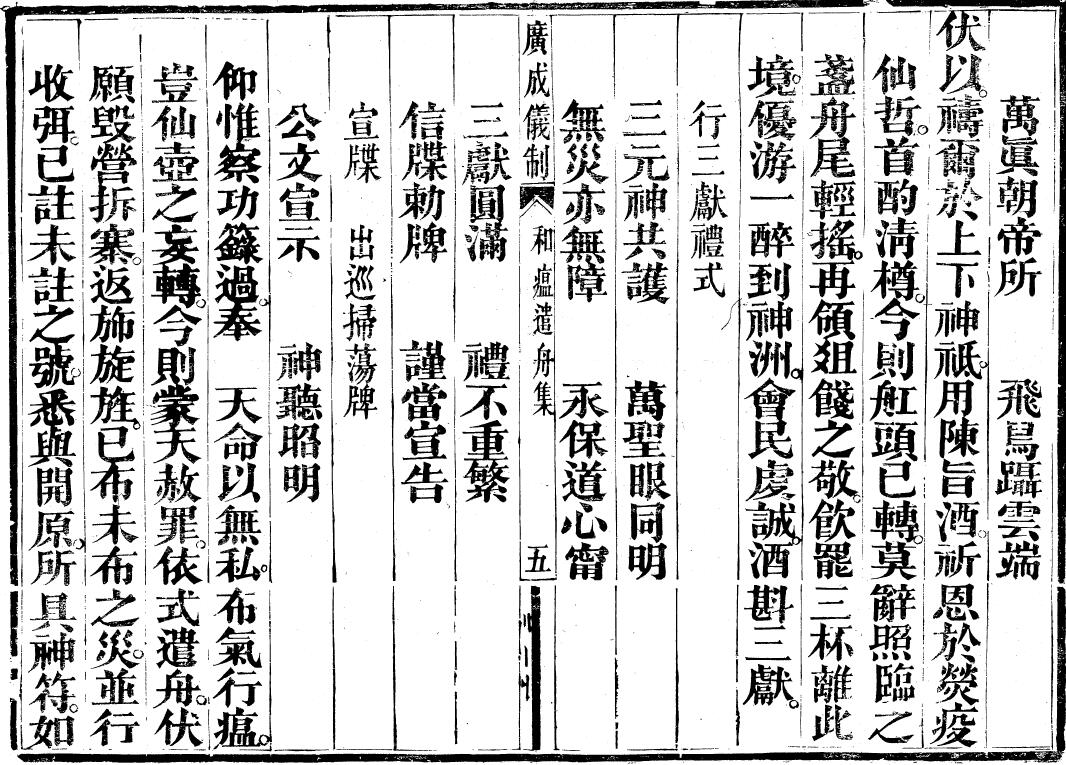 萬眞朝帝所　飛舄躡雲端
伏以。禱爾於上下神祇。用陳旨酒。祈恩於熒疫
仙哲。首酌淸樽。今則舡頭已轉。莫辭照臨之
盞。舟尾輕搖。再領俎餞之敬。飮罷三杯離此
境。優游一醉到神洲。會民虔誠。酒斟三獻。
行三獻禮式
三元神共護　萬聖眼同明
無災亦無障　永保道心寗
廣成儀制　和瘟遣舟集　五
三獻圓滿　禮不重繁
信牒勅牌　謹當宣告
宣牒　出巡掃蕩牌
公文宣示　神聽昭明
仰惟察功籙過。奉　天命以無私。布氣行瘟。
豈仙壺之妄轉。今則蒙天赦罪。依式遣舟。伏
願毀營拆寨。返斾旋旌。已布未布之災。並行
收弭。已註未註之號。悉與開原。所具神符。如